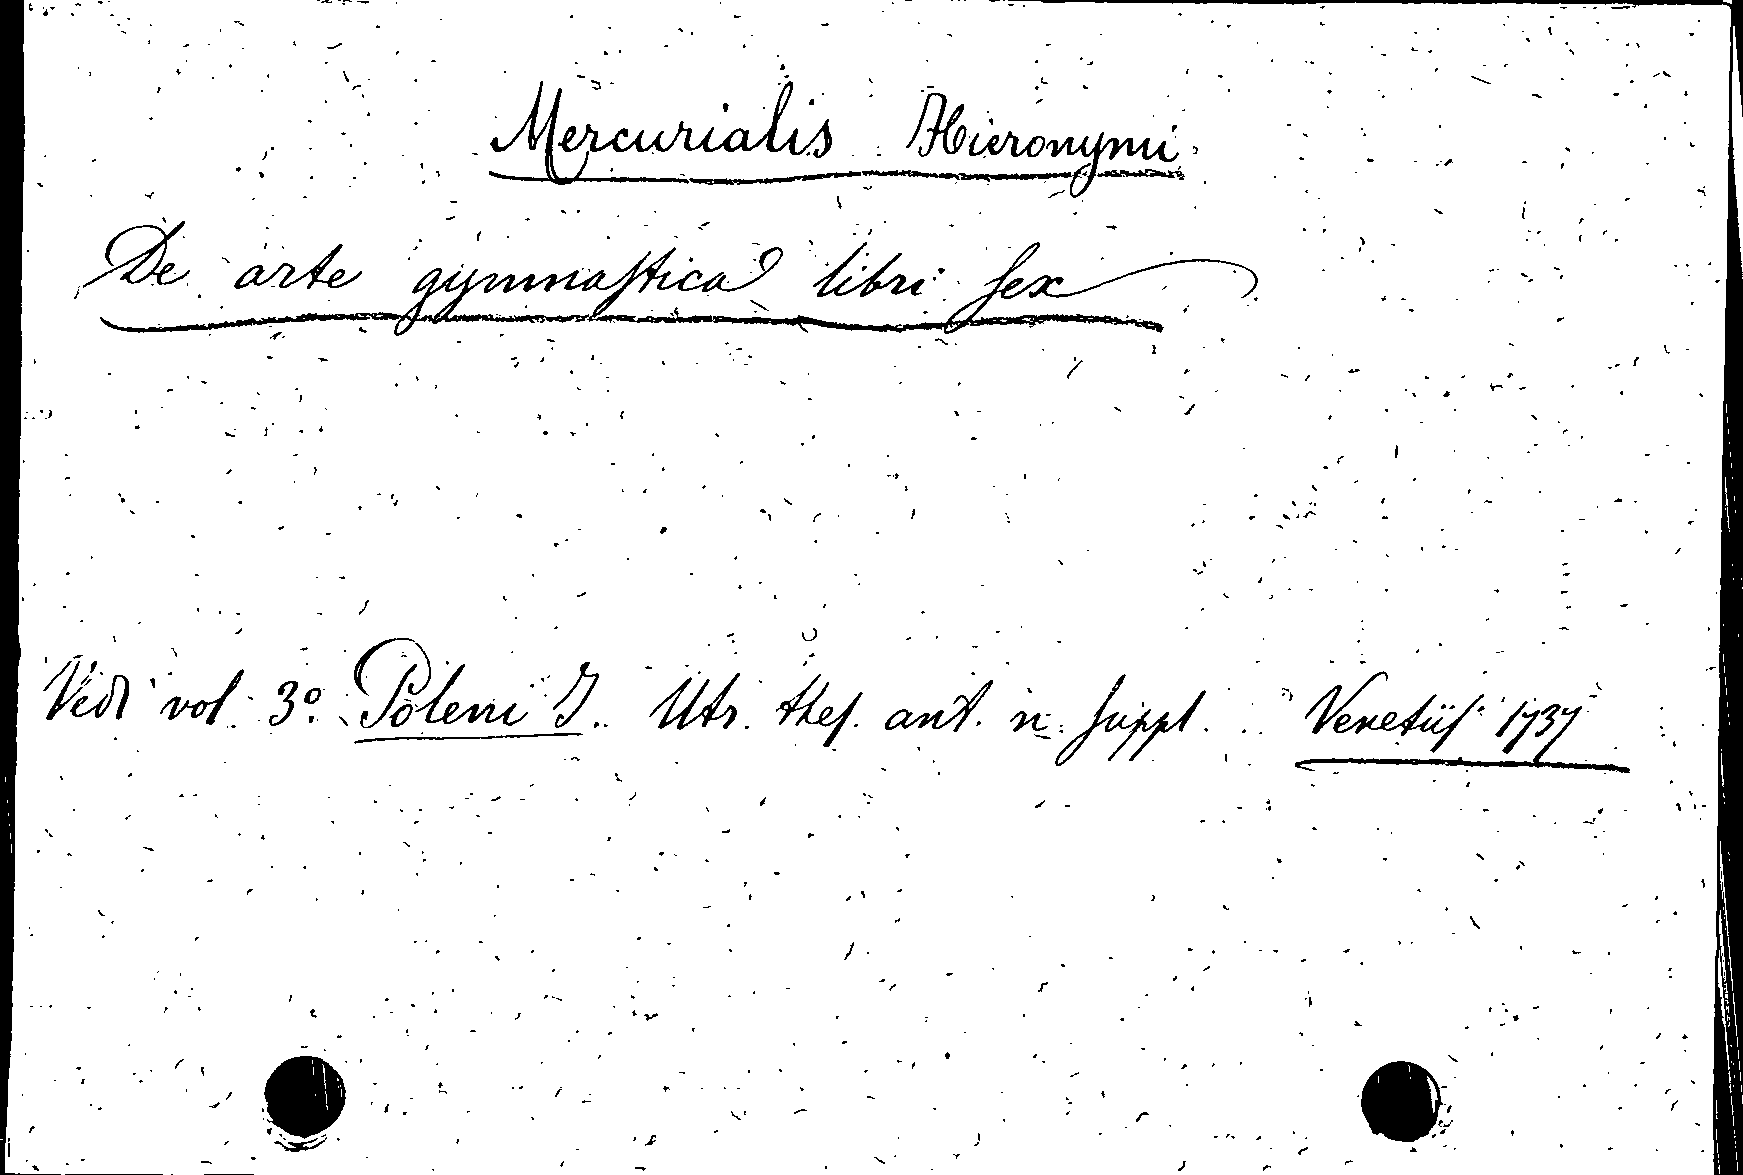 Mercurialis Hieronymi
De arte gymnaſtica libri ſex
Vedi vol. 3º. Poleni I. Utr. theſ. ant. n. ſuppl. Venetiiſ 1737